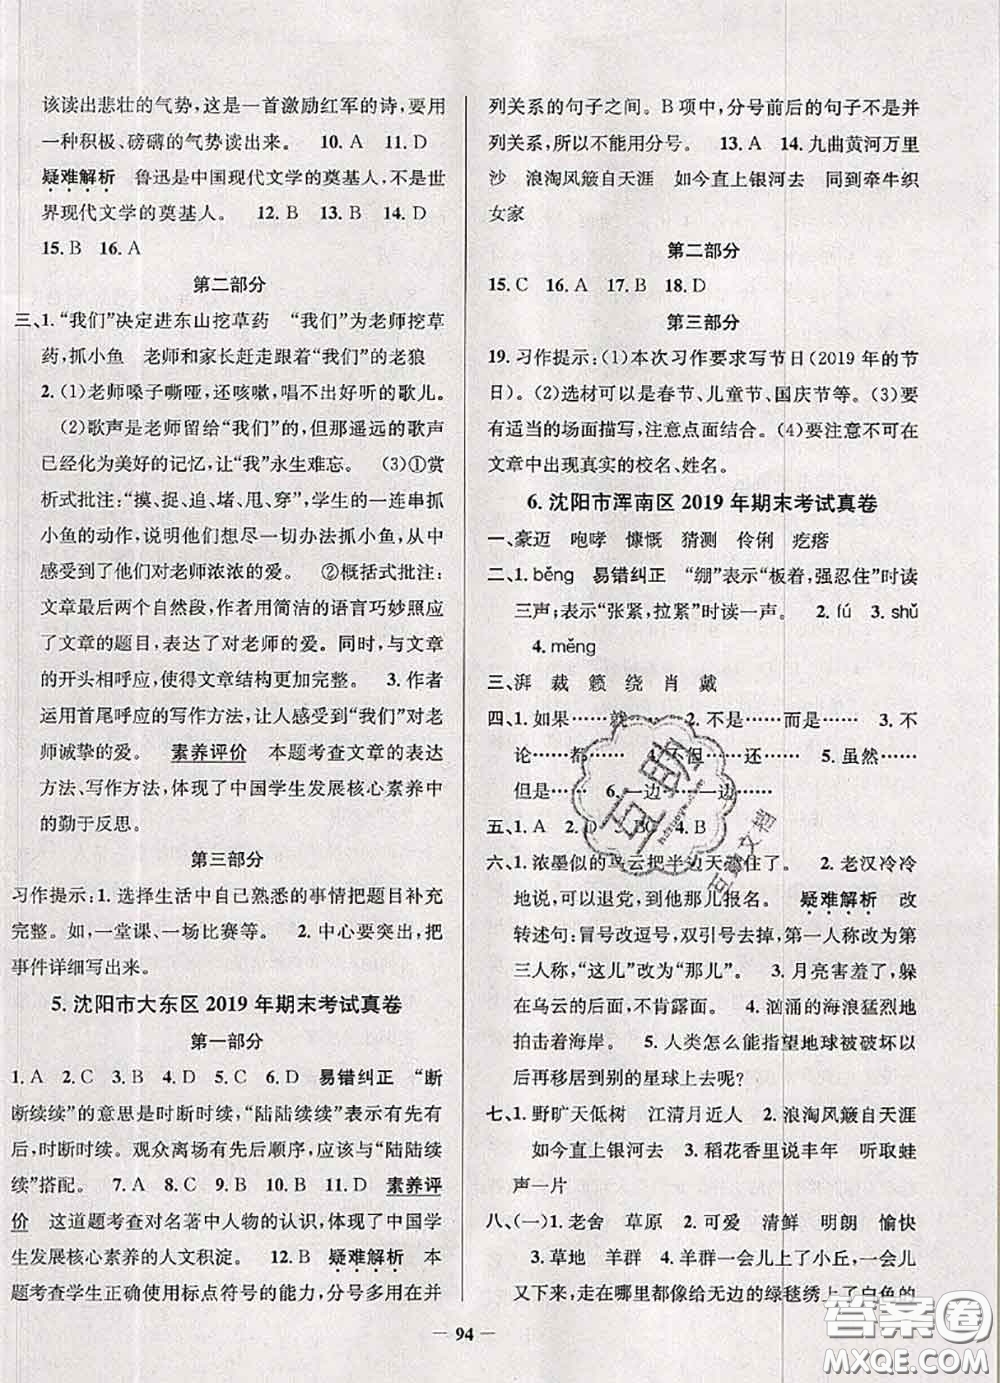 该读出悲壮的气势,这是一首激励红军的诗,要用
一种积极、磅礴的气势读出来。 10. A 11. D
疑难解析 鲁迅是中国现代文学的奠基人,不是世
界现代文学的奠基人。 12. B 13. B 14. D
15. B 16. A
第二部分
三、1.“我们”决定进东山挖草药 “我们”为老师挖草
药,抓小鱼 老师和家长赶走跟着“我们”的老狼
2. (1)老师嗓子嘶哑,还咳嗽,唱不出好听的歌儿。
(2)歌声是老师留给“我们”的,但那遥远的歌声
已经化为美好的记忆,让“我”永生难忘。 (3)①赏
析式批注:“摸、捉、追、堵、甩、穿”,学生的一连串抓
小鱼的动作,写出了他们想尽一切办法抓小鱼,从中
感受到了他们对老师浓浓的爱。 ②概括式批注:
文章最后两个自然段,作者用简洁的语言巧妙照应
了文章的题目,表达了对老师的爱。同时,与文章的
开头相呼应,使得文章结构更加完整。 3. 作者
运用首尾呼应的写作方法,让人感受到“我们”对老
师诚挚的爱。 素养评价 本题考查文章的表达
方法、写作方法,体现了中国学生发展核心素养中
的勤于反思。
第三部分
习作提示:1. 选择生活中自己熟悉的事情把题目补充
完整。如,一堂课、一场比赛等。 2. 中心要突出,把
事件详细写出来。
5. 沈阳市大东区 2019 年期末考试真卷
第一部分
1. A 2. C 3. B 4. D 5. C 6. D 易错纠正 “断
断续续”的意思是时断时续,“陆陆续续”表示有先有
后,时断时续。观众离场有先后顺序,应该与“陆陆续
续”搭配。 7. A 8. C 9. C 10. B 11. D 素养评
价 这道题考查对名著中人物的认识,体现了中国学
生发展核心素养的人文积淀。 12. B 疑难解析 本
题考查学生正确使用标点符号的能力,分号多用在并
列关系的句子之间。B 项中,分号前后的句子不是并
列关系,所以不能用分号。 13. A 14. 九曲黄河万里
沙 浪淘风簸自天涯 如今直上银河去 同到牵牛织
女家
第二部分
15. C 16. A 17. B 18. D
第三部分
19. 习作提示:(1)本次习作要求写节日(2019 年的节
日)。(2)选材可以是春节、儿童节、国庆节等。(3)要
有适当的场面描写,注意点面结合。(4)要注意不可在
文章中出现真实的校名、姓名。
6. 沈阳市浑南区 2019 年期末考试真卷
一、豪迈 咆哮 慷慨 猜测 伶俐 疙瘩
二、1. běng 易错纠正 “绷”表示“板着,强忍住”时读
三声;表示“张紧,拉紧”时读一声。 2. fú 3. shǔ
4. měng
三、湃 裁 籁 绕 肖 戴
四、1. 如果……就…… 2. 不是……而是…… 3. 不
论……都…… 4. 不但……还…… 5. 虽然……
但是…… 6. 一边……一边……
五、1. A 2. D 3. BC 4. B
六、1. 浓墨似的乌云把半边天遮住了。 2. 老汉冷冷
地说,可以退党,到他那儿报名。 疑难解析 改
转述句:冒号改逗号,双引号去掉,第一人称改为第
三人称,“这儿”改为“那儿”。 3. 月亮害羞了,躲
在乌云的后面,不肯露面。 4. 汹涌的海浪猛烈地
拍击着海岸。 5. 人类怎么能指望地球被破坏以
后再移居到别的星球上去呢?
七、1. 野旷天低树 江清月近人 2. 浪淘风簸自天涯
如今直上银河去 3. 稻花香里说丰年 听取蛙
声一片
八、(一)1. 老舍 草原 2. 可爱 清鲜 明朗 愉快
3. 草地 羊群 4. 羊群一会儿上了小丘,一会儿
又下来,走在哪里都像给无边的绿毯绣上了白色的
— 94 —
互助文档
答案圈
MXQE.COM